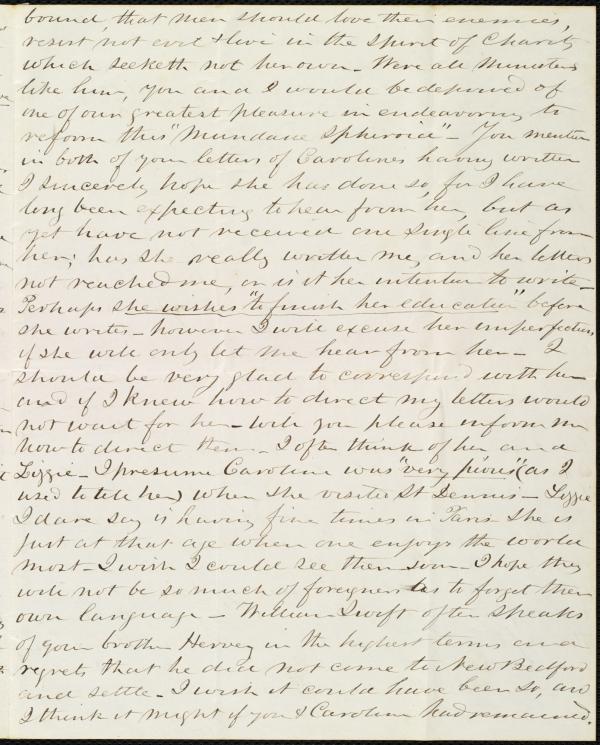 bound, that men should love their enemies,
resist not evil & live in the spirit of Charity
which seeketh not her own - Were all Ministers
like him, you and I would be deprived of
one of our greatest pleasure in endeavoring to
reform this "Mundane Spheroid" - You mention
in both of your letters of Carolines having written
I sincerely hope she has done so, for I have
long been expecting to hear from her, but as
yet have not received one single line from
her; has she really written me, and her letters
not reached me, or is it her intention to write -
Perhaps she wishes "to finish her education" before
she writes - however I will excuse her imperfections
if she will only let me hear from her - I
should be very glad to correspond with her
and if I knew how to direct my letters would
not wait for her - will you please inform me
how to direct them - I often think of her and
Lizzie - I presume Caroline was "very pious" (as I
used to tell her) when she visited St Dennis - Lizzie
I dare say is having fine times in Paris she is
just at that age when one enjoys the world
most - I wish I could see them soon - I hope they
will not be so much of foreigners as to forget their
own language - William Swift often speaks
of your brother Hervey in the highest terms and
regrets that he did not come to New Bedford
and settle - I wish it could have been so, and
I think it might if you & Caroline had remained.